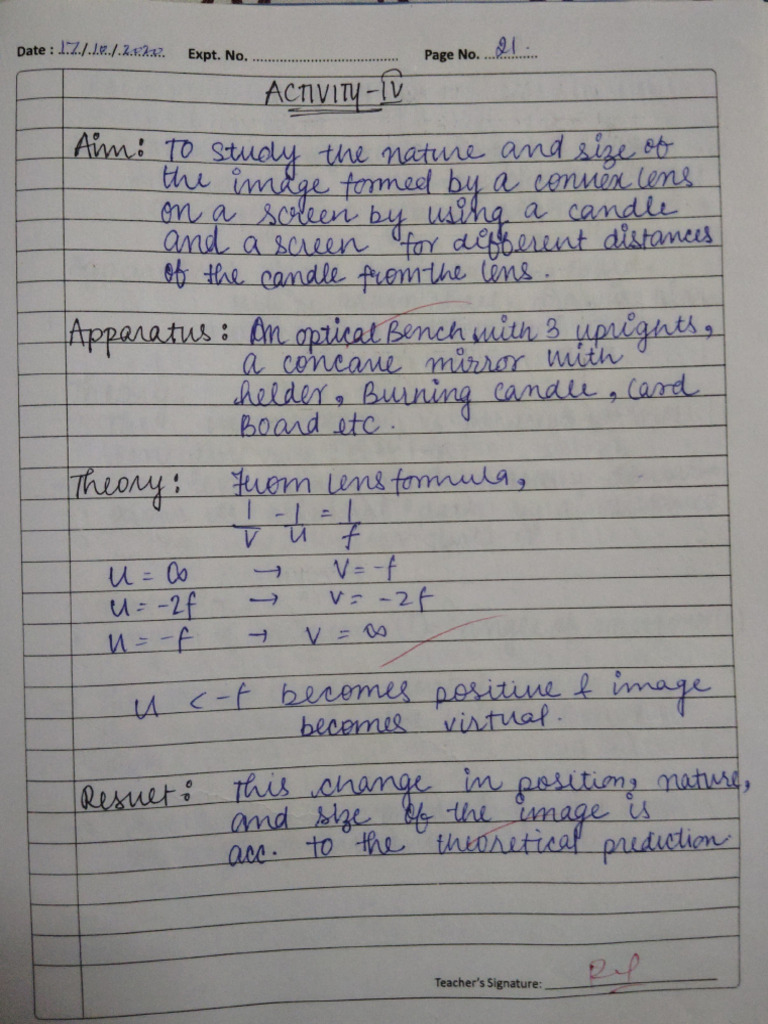 Date : 17/10/2022 Expt. No. Page No. 21.
ACTIVITY-IV
Aim: To study the nature and size of
the image formed by a convex lens
on a screen by using a candle
and a screen for different distances
of the candle from the lens.
Apparatus: An optical Bench with 3 uprights,
a concave mirror with
holder, Burning candle, Card
Board etc.
Theory: From lens formula,
1/V - 1/U = 1/f
U = ∞ → V = -f
U = -2f → V = -2f
U = -f → V = ∞
U < -f becomes positive & image
becomes virtual.
Result: This change in position, nature,
and size of the image is
acc. to the theoretical prediction.
Teacher's Signature: